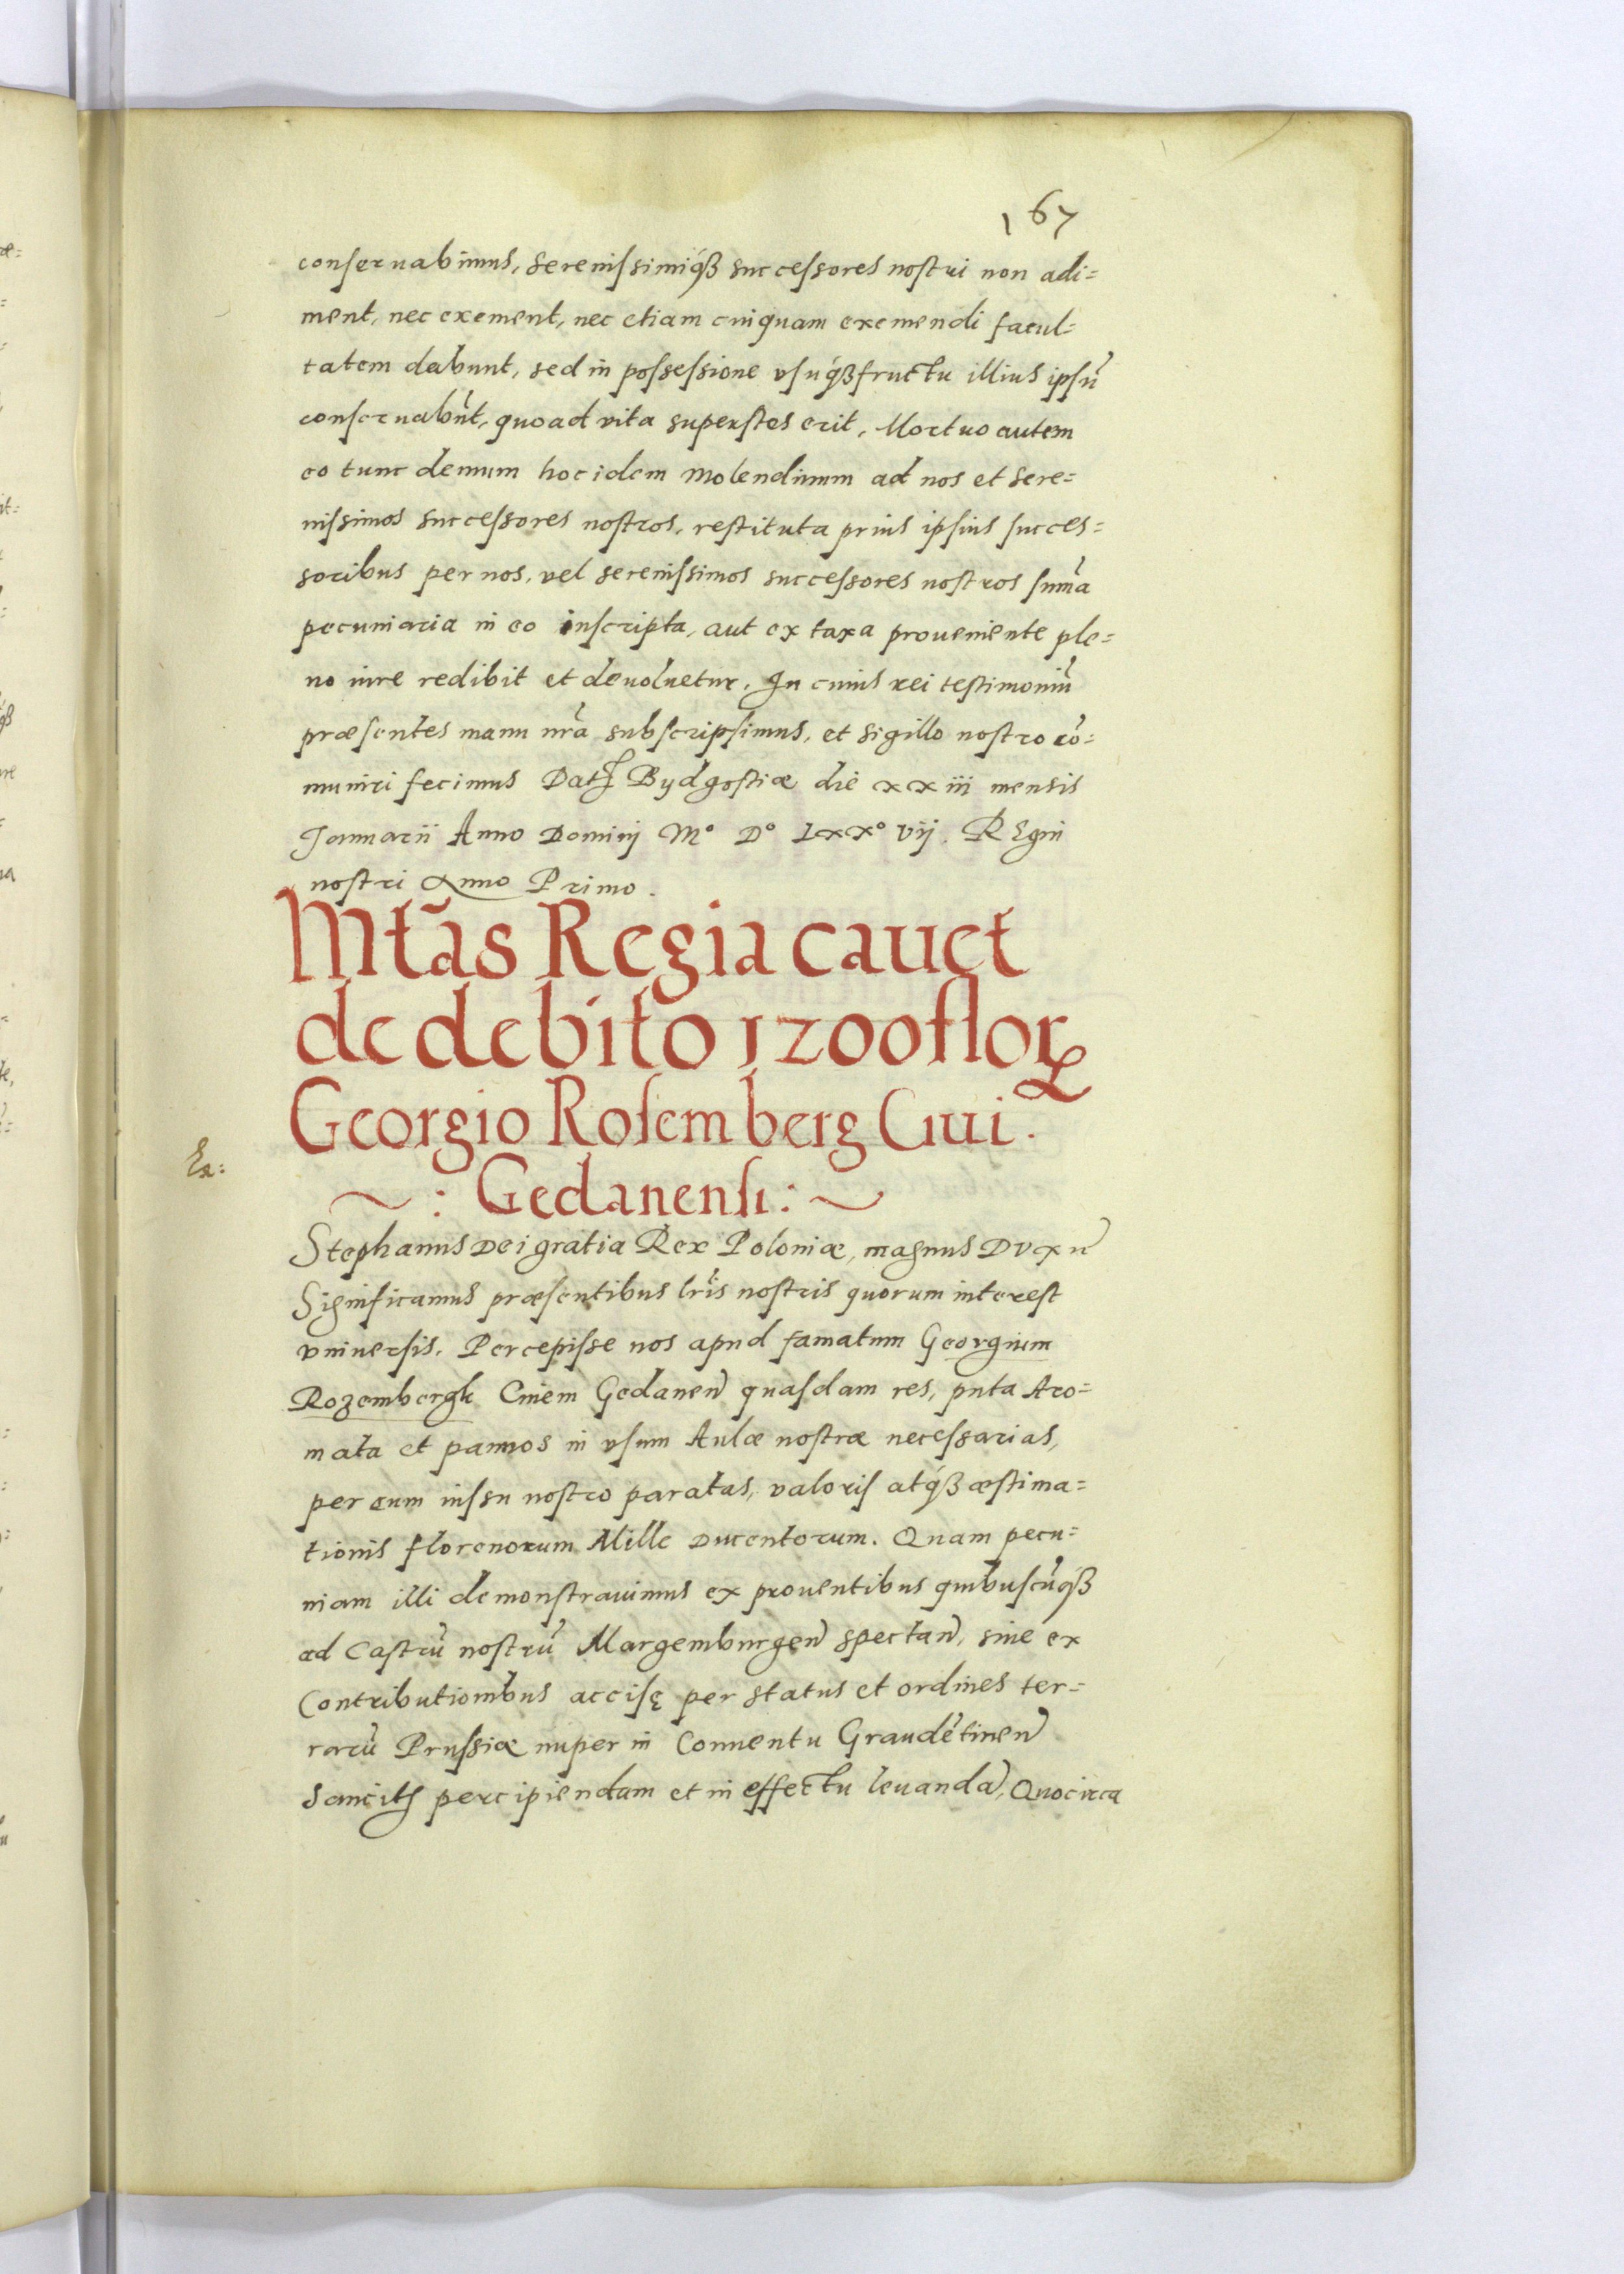 167
conseruabimus, serenissimiq́ꝫ successores nostri non adi=
ment, nec exement, nec etiam cuiquam exemendi facul=
tatem dabunt, sed in possessione vsuq́ꝫfructu illius ipsũ
conseruabũt, quoad vita superstes erit, Mortuo autem
eo tunc demum hoc idem Molendinum ad nos et Sere=
nissimos successores nostros, restituta prius ipsius succes=
soribus per nos, vel serenissimos successores nostros sum̃a
pecuniaria in eo inscripta, aut ex taxa proueniente ple=
no iure redibit et deuoluetur. In cuius rei testimoniũ
præsentes manu nr̃a subscripsimus, et sigillo nostro cõ=
muniri fecimus Datꝭ Bydgostiæ die xxiii mensis
Januarii Anno Dominj Mᵒ Dᵒ Lxxᵒ vij. REgni
nostri Anno Primo.
Mtãs Regia cauet
de debito 1200 florꝝ
Georgio Rosemberg Ciui.
Ex:
~: Gedanensi: ~
Stephanus Dei gratia Rex Poloniæ, magnus Dux ñ
Significamus præsentibus lr̃is nostris quorum interest
vniuersis. Percepisse nos apud famatum Georgium
Rozembergk Ciuem Gedanen̄ quasdam res, puta Aro=
mata et pannos in vsum Aulæ nostræ necessarias,
per eum iussu nostro paratas, valoris atq́ꝫ æstima=
tionis florenorum Mille Ducentorum. Quam pecu=
niam illi demonstrauimus ex prouentibus quibuscũqꝫ
ad Castrũ nostrũ Margemburgen̄ spectan̄, siue ex
Contributionibus accisę per status et ordines ter=
rarũ Prussiæ nuper in Conuentu Graudẽtinen̄
Sancitꝭ percipiendam et in effectu leuandã, Quocirca